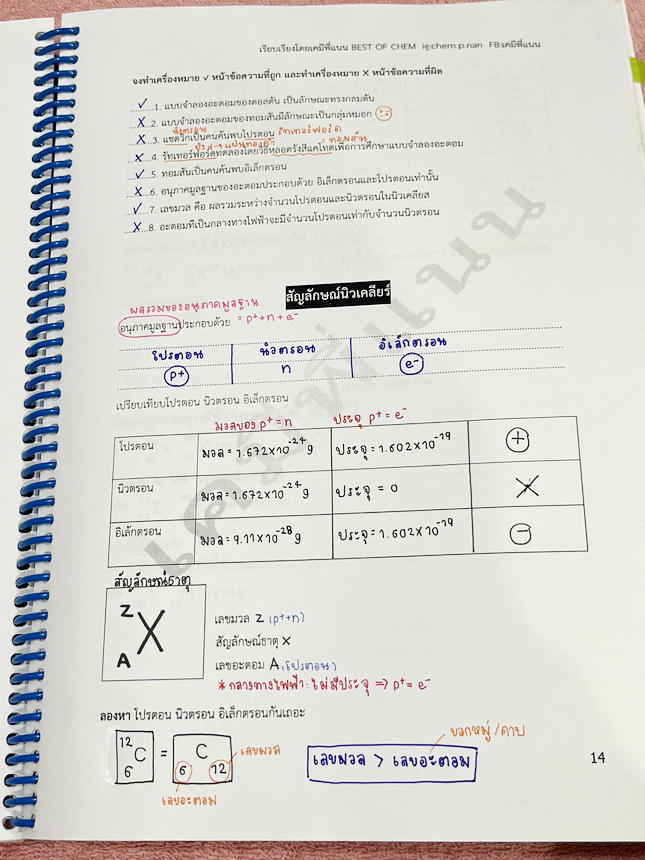 เรียบเรียงโดยเคมีพี่แนน BEST OF CHEM ig:chem.p.nan FB:เคมีพี่แนน
จงทำเครื่องหมาย √ หน้าข้อความที่ถูก และทำเครื่องหมาย X หน้าข้อความที่ผิด
✓ 1. แบบจำลองอะตอมของดอลตัน เป็นลักษณะทรงกลมตัน
X 2. แบบจำลองอะตอมของทอมสันมีลักษณะเป็นกลุ่มหมอก
นิวตรอน รัทเทอร์ฟอร์ด
X 3. แชดวิกเป็นคนค้นพบโปรตอน
ยิงα→แผ่นทองคำ =ทอมสัน
X 4. รัทเทอร์ฟอร์ดทดลองโดยวิธีหลอดรังสีแคโทดเพื่อการศึกษาแบบจำลองอะตอม
✓ 5. ทอมสันเป็นคนค้นพบอิเล็กตรอน
X 6. อนุภาคมูลฐานของอะตอมประกอบด้วย อิเล็กตรอนและโปรตอนเท่านั้น
✓ 7. เลขมวล คือ ผลรวมระหว่างจำนวนโปรตอนและนิวตรอนในนิวเคลียส
X 8. อะตอมที่เป็นกลางทางไฟฟ้าจะมีจำนวนโปรตอนเท่ากับจำนวนนิวตรอน
สัญลักษณ์นิวเคลียร์
ผลรวมของอนุภาคมูลฐาน
อนุภาคมูลฐานประกอบด้วย = p⁺+n+e⁻
โปรตอน นิวตรอน อิเล็กตรอน
p⁺ n e⁻
เปรียบเทียบโปรตอน นิวตรอน อิเล็กตรอน
มวลของ p⁺=n ประจุ p⁺=e⁻
โปรตอน มวล=1.672x10⁻²⁴g ประจุ=1.602x10⁻¹⁹ +
นิวตรอน มวล=1.672x10⁻²⁴g ประจุ = 0 X
อิเล็กตรอน มวล=9.11x10⁻²⁸g ประจุ=1.602x10⁻¹⁹ −
สัญลักษณ์ธาตุ
Z
X
A
เลขมวล Z (p⁺+n)
สัญลักษณ์ธาตุ X
เลขอะตอม A (โปรตอน)
*กลางทางไฟฟ้า : ไม่มีประจุ ⇒ p⁺=e⁻
ลองหา โปรตอน นิวตรอน อิเล็กตรอนกันเถอะ
บอกหมู่/คาบ
12 C 6 = C 6 12 เลขมวล
เลขมวล > เลขอะตอม
เลขอะตอม
14
เคมีพี่แนน